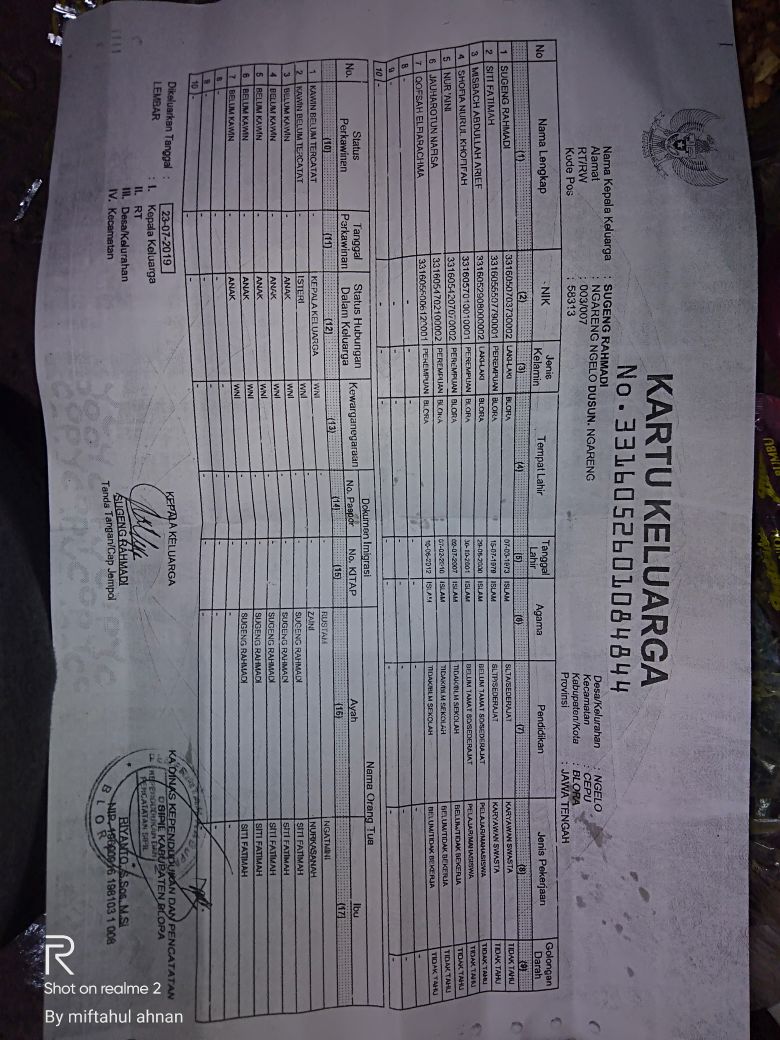 KARTU KELUARGA
No. 3316052601084844
Nama Kepala Keluarga : SUGENG RAHMADI
Alamat : NGARENG NGELO DUSUN. NGARENG
RT/RW : 003/007
Kode Pos : 58313
Desa/Kelurahan : NGELO
Kecamatan : CEPU
Kabupaten/Kota : BLORA
Provinsi : JAWA TENGAH
No Nama Lengkap NIK Jenis Kelamin Tempat Lahir Tanggal Lahir Agama Pendidikan Jenis Pekerjaan Golongan Darah
(1) (2) (3) (4) (5) (6) (7) (8) (9)
1 SUGENG RAHMADI 3316050703730002 LAKI-LAKI BLORA 07-03-1973 ISLAM SLTA/SEDERAJAT KARYAWAN SWASTA TIDAK TAHU
2 SITI FATIMAH 3316055507790001 PEREMPUAN BLORA 15-07-1979 ISLAM SLTP/SEDERAJAT KARYAWAN SWASTA TIDAK TAHU
3 MISBACH ABDULLAH ARIEF 3316052908000002 LAKI-LAKI BLORA 29-08-2000 ISLAM BELUM TAMAT SD/SEDERAJAT PELAJAR/MAHASISWA TIDAK TAHU
4 SHOFIA NURUL KHOFIFAH 3316057010010001 PEREMPUAN BLORA 30-10-2001 ISLAM BELUM TAMAT SD/SEDERAJAT PELAJAR/MAHASISWA TIDAK TAHU
5 NUR 'AINI 3316054207070002 PEREMPUAN BLORA 02-07-2007 ISLAM TIDAK/BLM SEKOLAH BELUM/TIDAK BEKERJA TIDAK TAHU
6 JAUHAROTUN NAFISA 3316054702100002 PEREMPUAN BLORA 07-02-2010 ISLAM TIDAK/BLM SEKOLAH BELUM/TIDAK BEKERJA TIDAK TAHU
7 QOFSAH ELFIARACHMA PEREMPUAN BLORA ISLAM TIDAK/BLM SEKOLAH BELUM/TIDAK BEKERJA TIDAK TAHU
8 - - - - - - - - -
9 - - - - - - - - -
10 - - - - - - - - -
No. Status Perkawinan Tanggal Perkawinan Status Hubungan Dalam Keluarga Kewarganegaraan Dokumen Imigrasi Nama Orang Tua
No. Paspor No. KITAP Ayah Ibu
(10) (11) (12) (13) (14) (15) (16) (17)
1 KAWIN BELUM TERCATAT - KEPALA KELUARGA WNI - - RUSTAM NGATMINI
2 KAWIN BELUM TERCATAT - ISTERI WNI - - ZAINI NURKASANAH
3 BELUM KAWIN - ANAK WNI - - SUGENG RAHMADI SITI FATIMAH
4 BELUM KAWIN - ANAK WNI - - SUGENG RAHMADI SITI FATIMAH
5 BELUM KAWIN - ANAK WNI - - SUGENG RAHMADI SITI FATIMAH
6 BELUM KAWIN - ANAK WNI - - SUGENG RAHMADI SITI FATIMAH
7 BELUM KAWIN - ANAK WNI - - SUGENG RAHMADI SITI FATIMAH
8 - - - - - - - -
9 - - - - - - - -
10 - - - - - - - -
Dikeluarkan Tanggal : 23-07-2019
LEMBAR : I. Kepala Keluarga
II. RT
III. Desa/Kelurahan
IV. Kecamatan
KEPALA KELUARGA
SUGENG RAHMADI
Tanda Tangan/Cap Jempol
KA DINAS KEPENDUDUKAN DAN PENCATATAN
SIPIL KABUPATEN BLORA
RIYANTO, S.Sos, M.Si
BLORA
Shot on realme 2
By miftahul ahnan